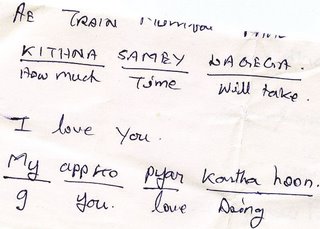 AE TRAIN
KITHNA SAMEY LAGEGA.
How much Time will take.
I love You.
My appko pyar kartha hoon.
I you. love Doing